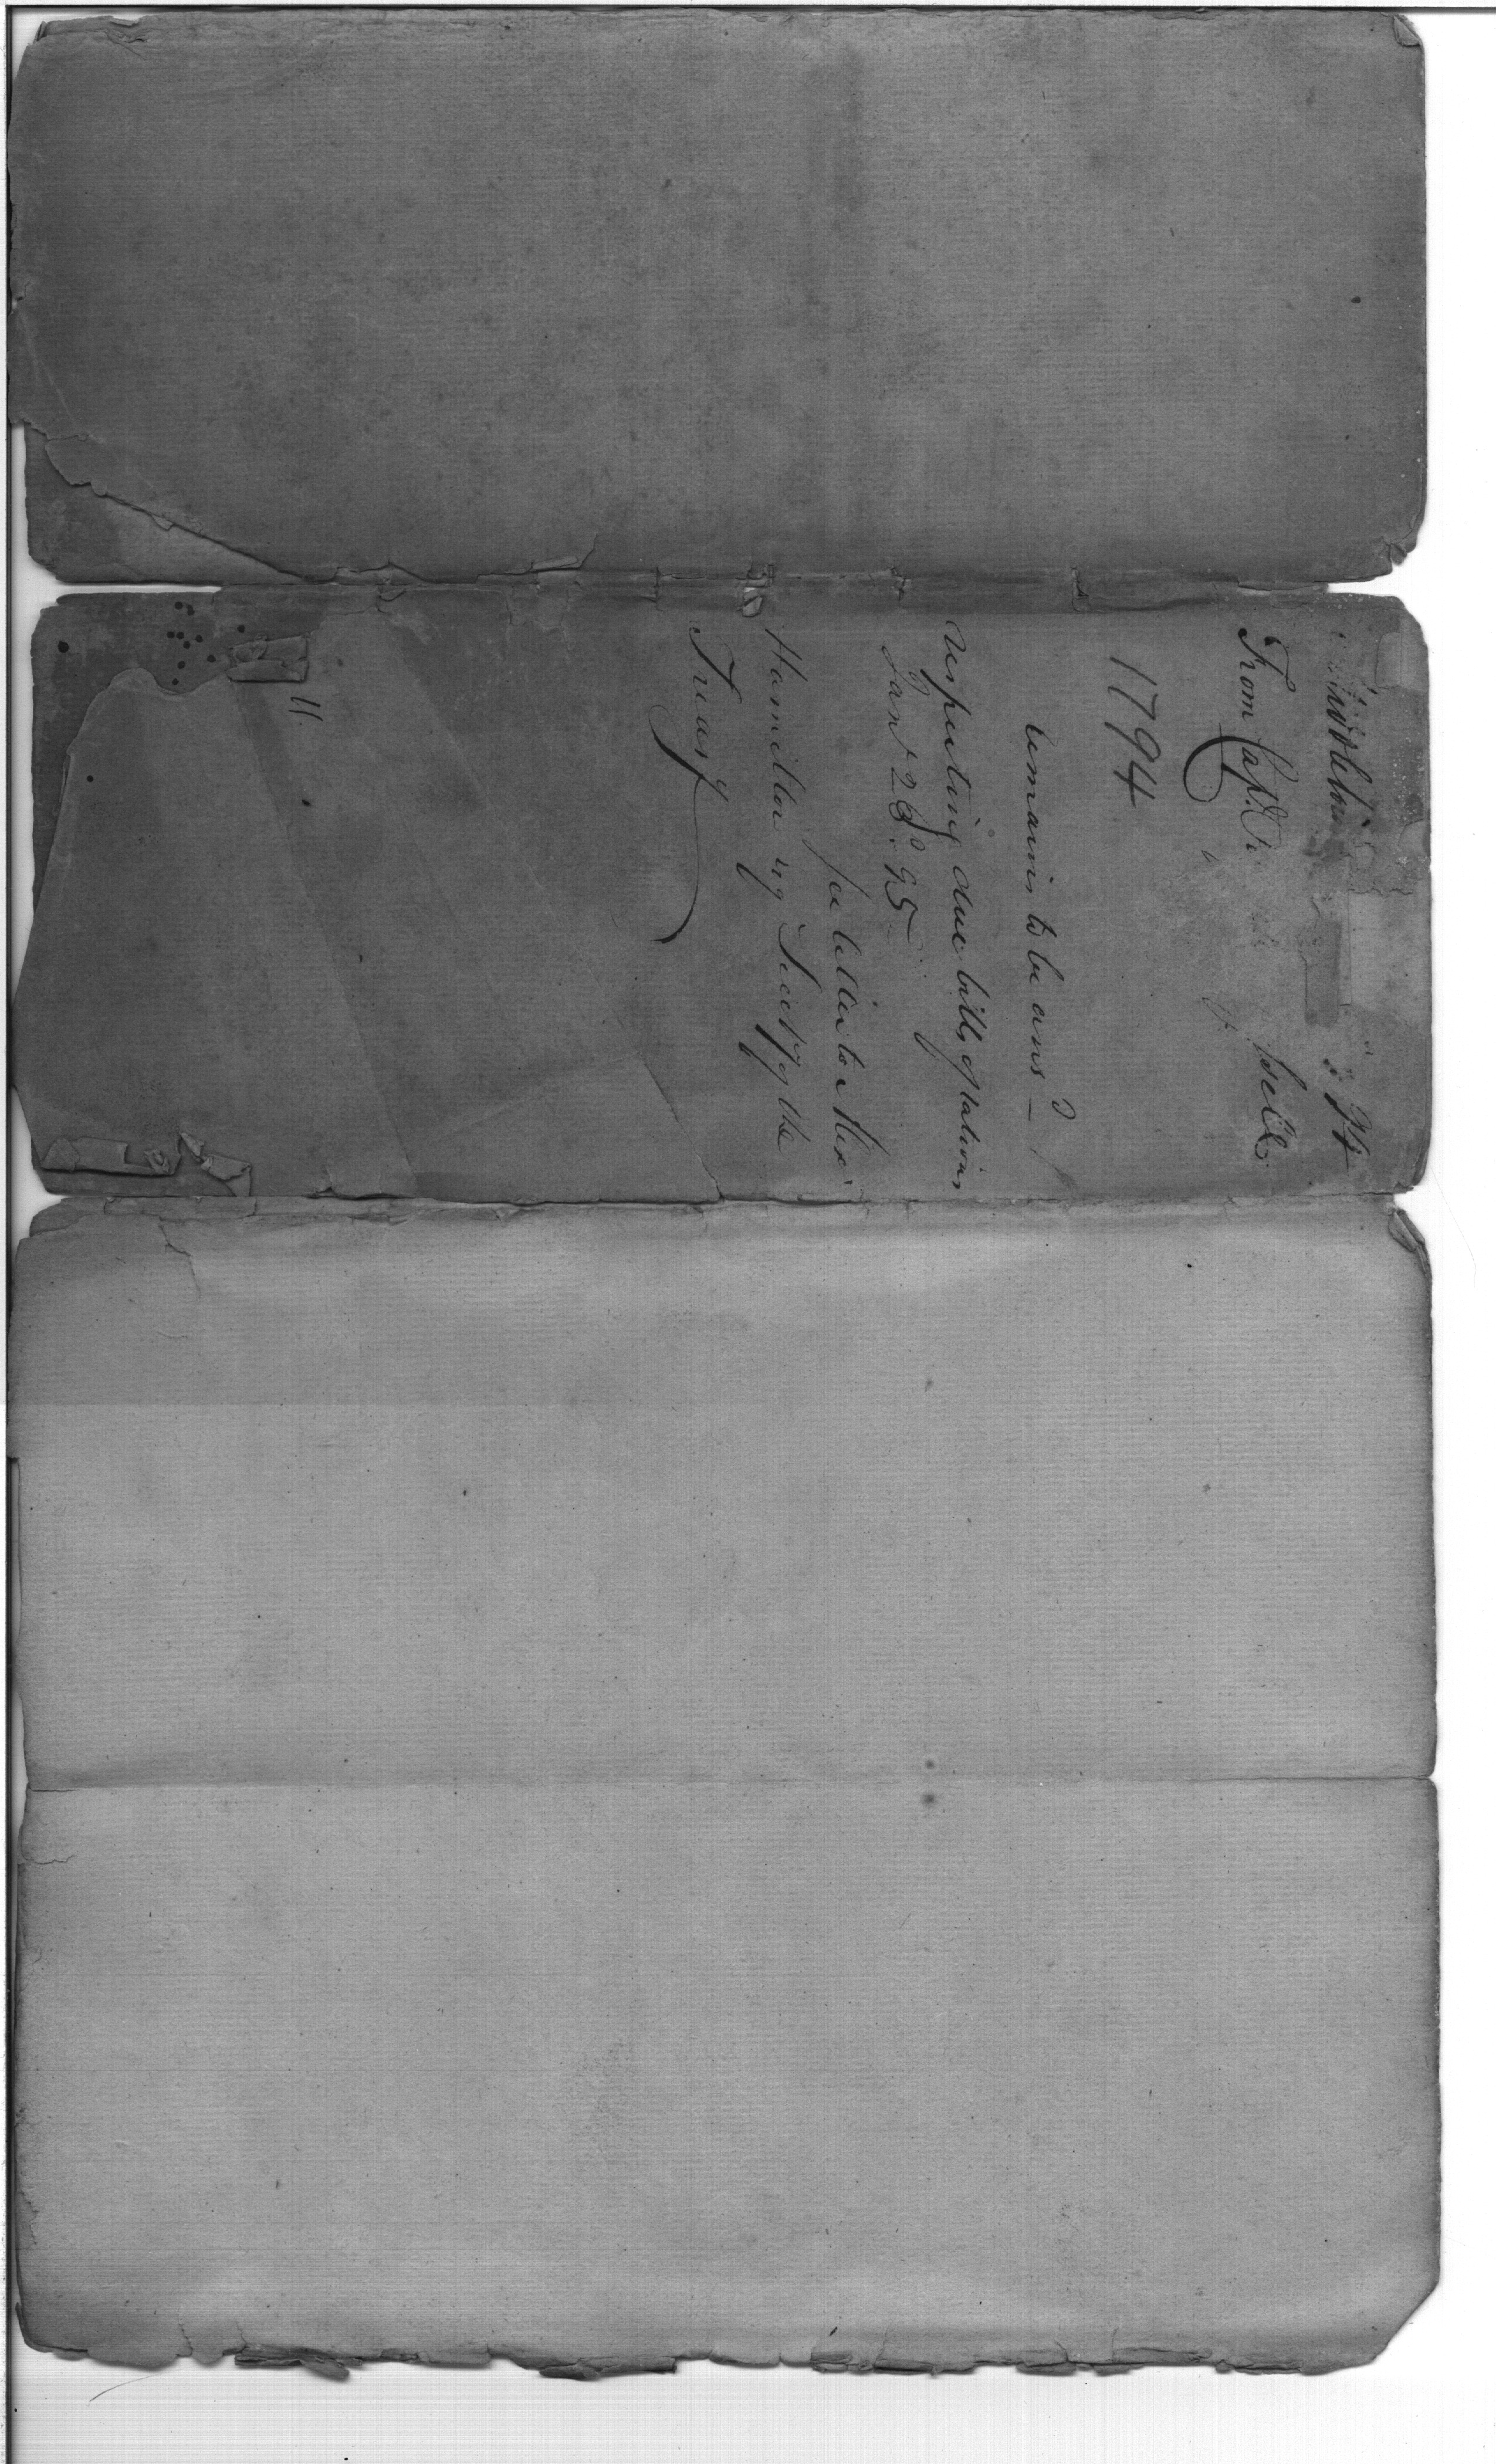 94
From Capt.
1794
remains to be ans^d —
respecting due bills of rations
Jan^y 28^o. 95 —
See letter to Alex^r.
Hamilton esq Secret^y of the
Treas^y
11.